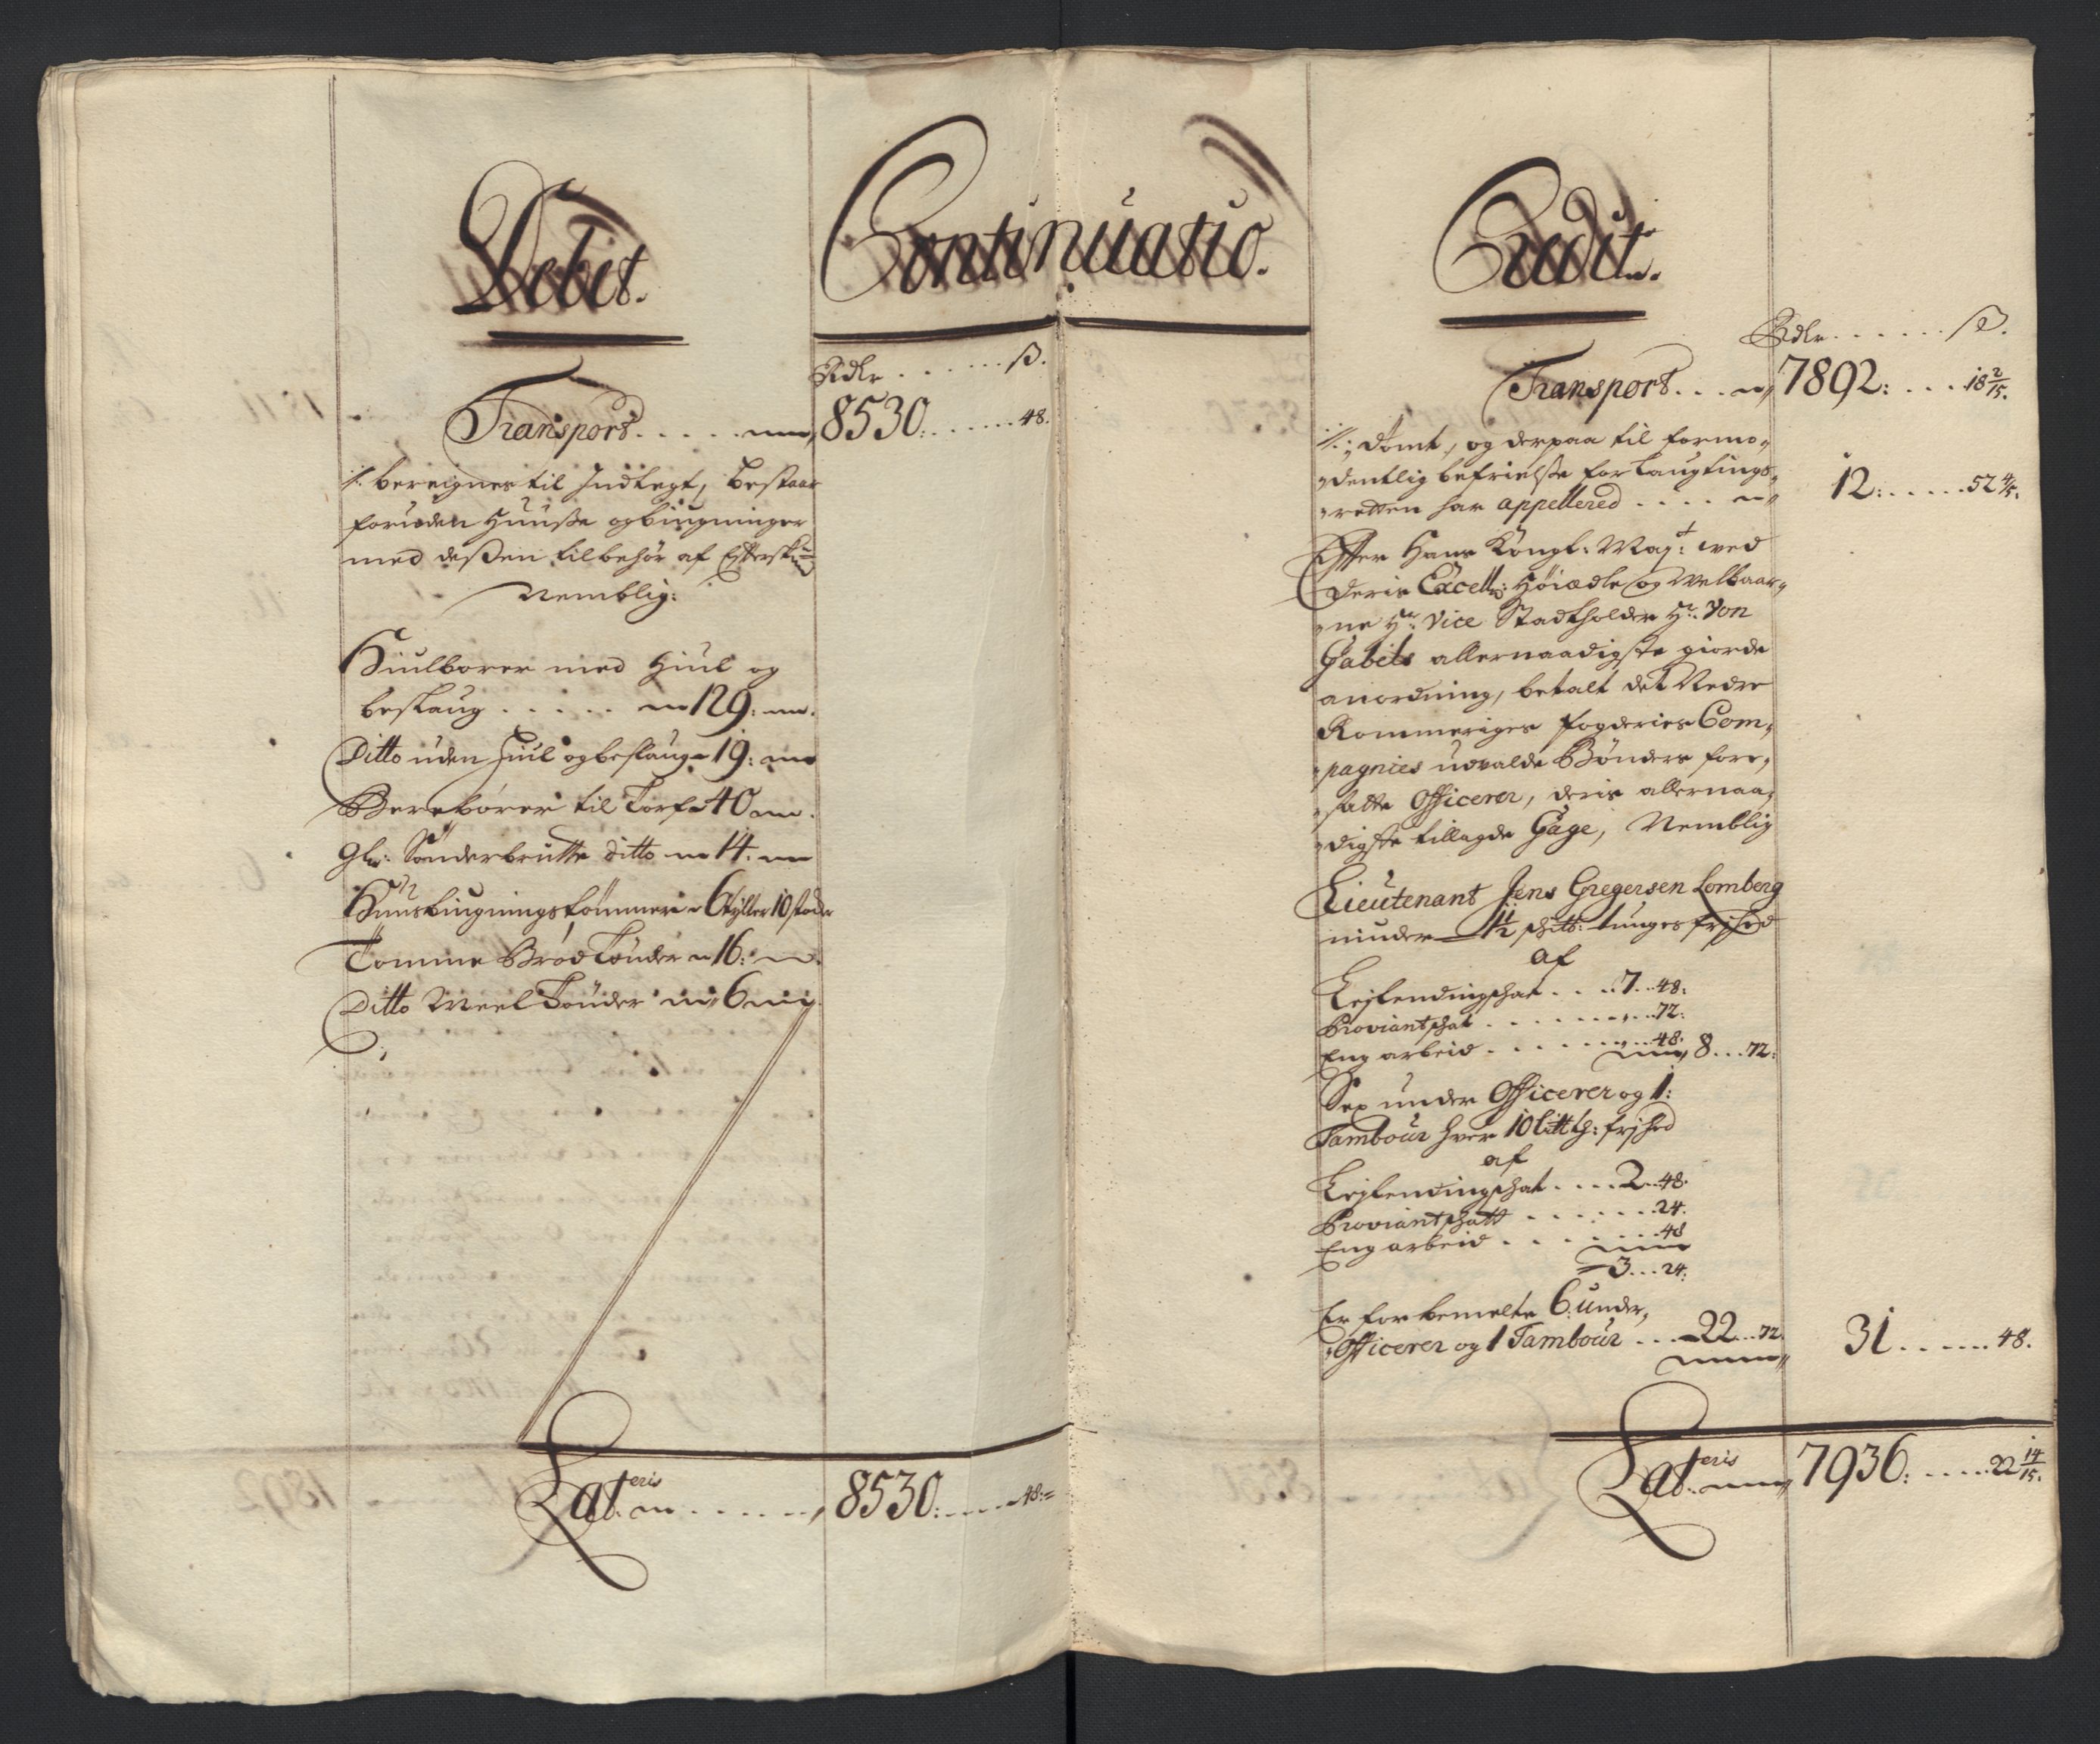 Debet.
Continuatio.
Credit.
Rdlr ...... ß.
Transport ..... 8530: ...... 48.
bereignes til Indtegt, bestaar
foruden Huuse og biugninger
med deßen tilbehör af
Nemblig:
Hiulborer med Hiul og
beslaug ..... 129:
Ditto uden Hiul og beslaug 19:
Berebörer til Torf 40
Sönderbrutte ditto 14:
Huusbiugnings tömmer 6 tylter 10 stoder
Tomme Bröd Tönder 16:
Ditto Meel Tönder 6
Lateris ...... 8530: ..... 48:
Rdlr ...... ß.
Transport ... 7892: ... 18 2/15.
dömt, og derpaa til formo,,
,,dentlig befrielsse for Laugtings,,
,,retten har appellered .... 12: ..... 52 4/5.
Efter Hans Kongl: Mayt: ved
Deris Excell: Höiædle og Welbaar,,
,,ne Hr: Vice Stadtholder Hr: Von
Gabels allernaadigste giorde
anordning, betalt det Nedre
Rommeriges fogderies Com,,
,,pagnies udvalde Bönders fore,,
,,satte Officerer, deris allernaa,,
,,digste tillagde Gage, Nemblig
Lieutenant Jens Gregersen Lomberg
niuder 1 1/2 schtb: tunges frihed
af
Leylendingschat .... 7 .. 48:
Proviantschat ....... 72:
Eng arbeid ....... 48.
8 ... 72:
Sex under Officerer og 1:
Tambour hver 10 litt tb: frihed
af
Leylendingschat .... 2 .. 48.
Proviantschatt ...... 24.
Eng arbeid ....... 48
3 ... 24:
Er for bemelte 6: under,,
,,Officerer og 1 Tambour ... 22 .. 72. 31 ...... 48.
Lateris 7936: ..... 22 14/15.